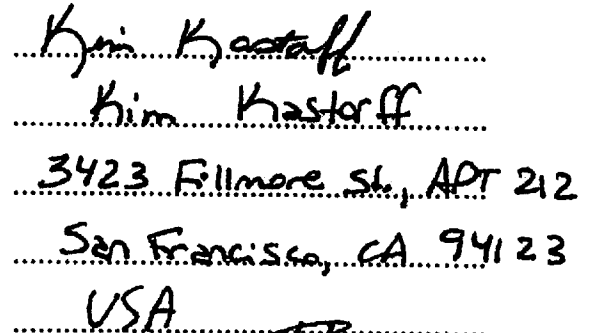 Kim Kastorff
Kim Kastorff
3423 Fillmore St., APT 212
San Francisco, CA 94123
USA